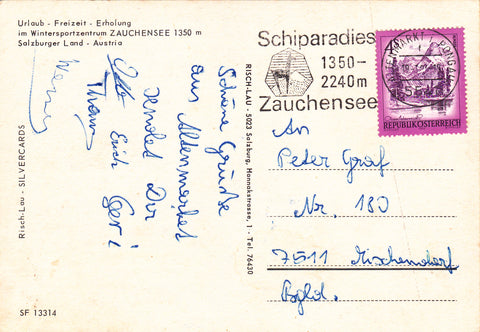 Urlaub - Freizeit - Erholung
im Wintersportzentrum ZAUCHENSEE 1350 m
Salzburger Land - Austria
Schöne Grüße
aus Altenmarkt
sendet Dir
Otto Erich Geri
Franz
Werner
Risch-Lau - SILVERCARDS
SF 13314
RISCH-LAU - 5023 Salzburg, Hannakstrasse, 1 - Tel. 76430
Schiparadies
1350-
2240m
Zauchensee
REPUBLIK ÖSTERREICH
An
Peter Graf
Nr. 180
7511 Mischendorf
Bgld.